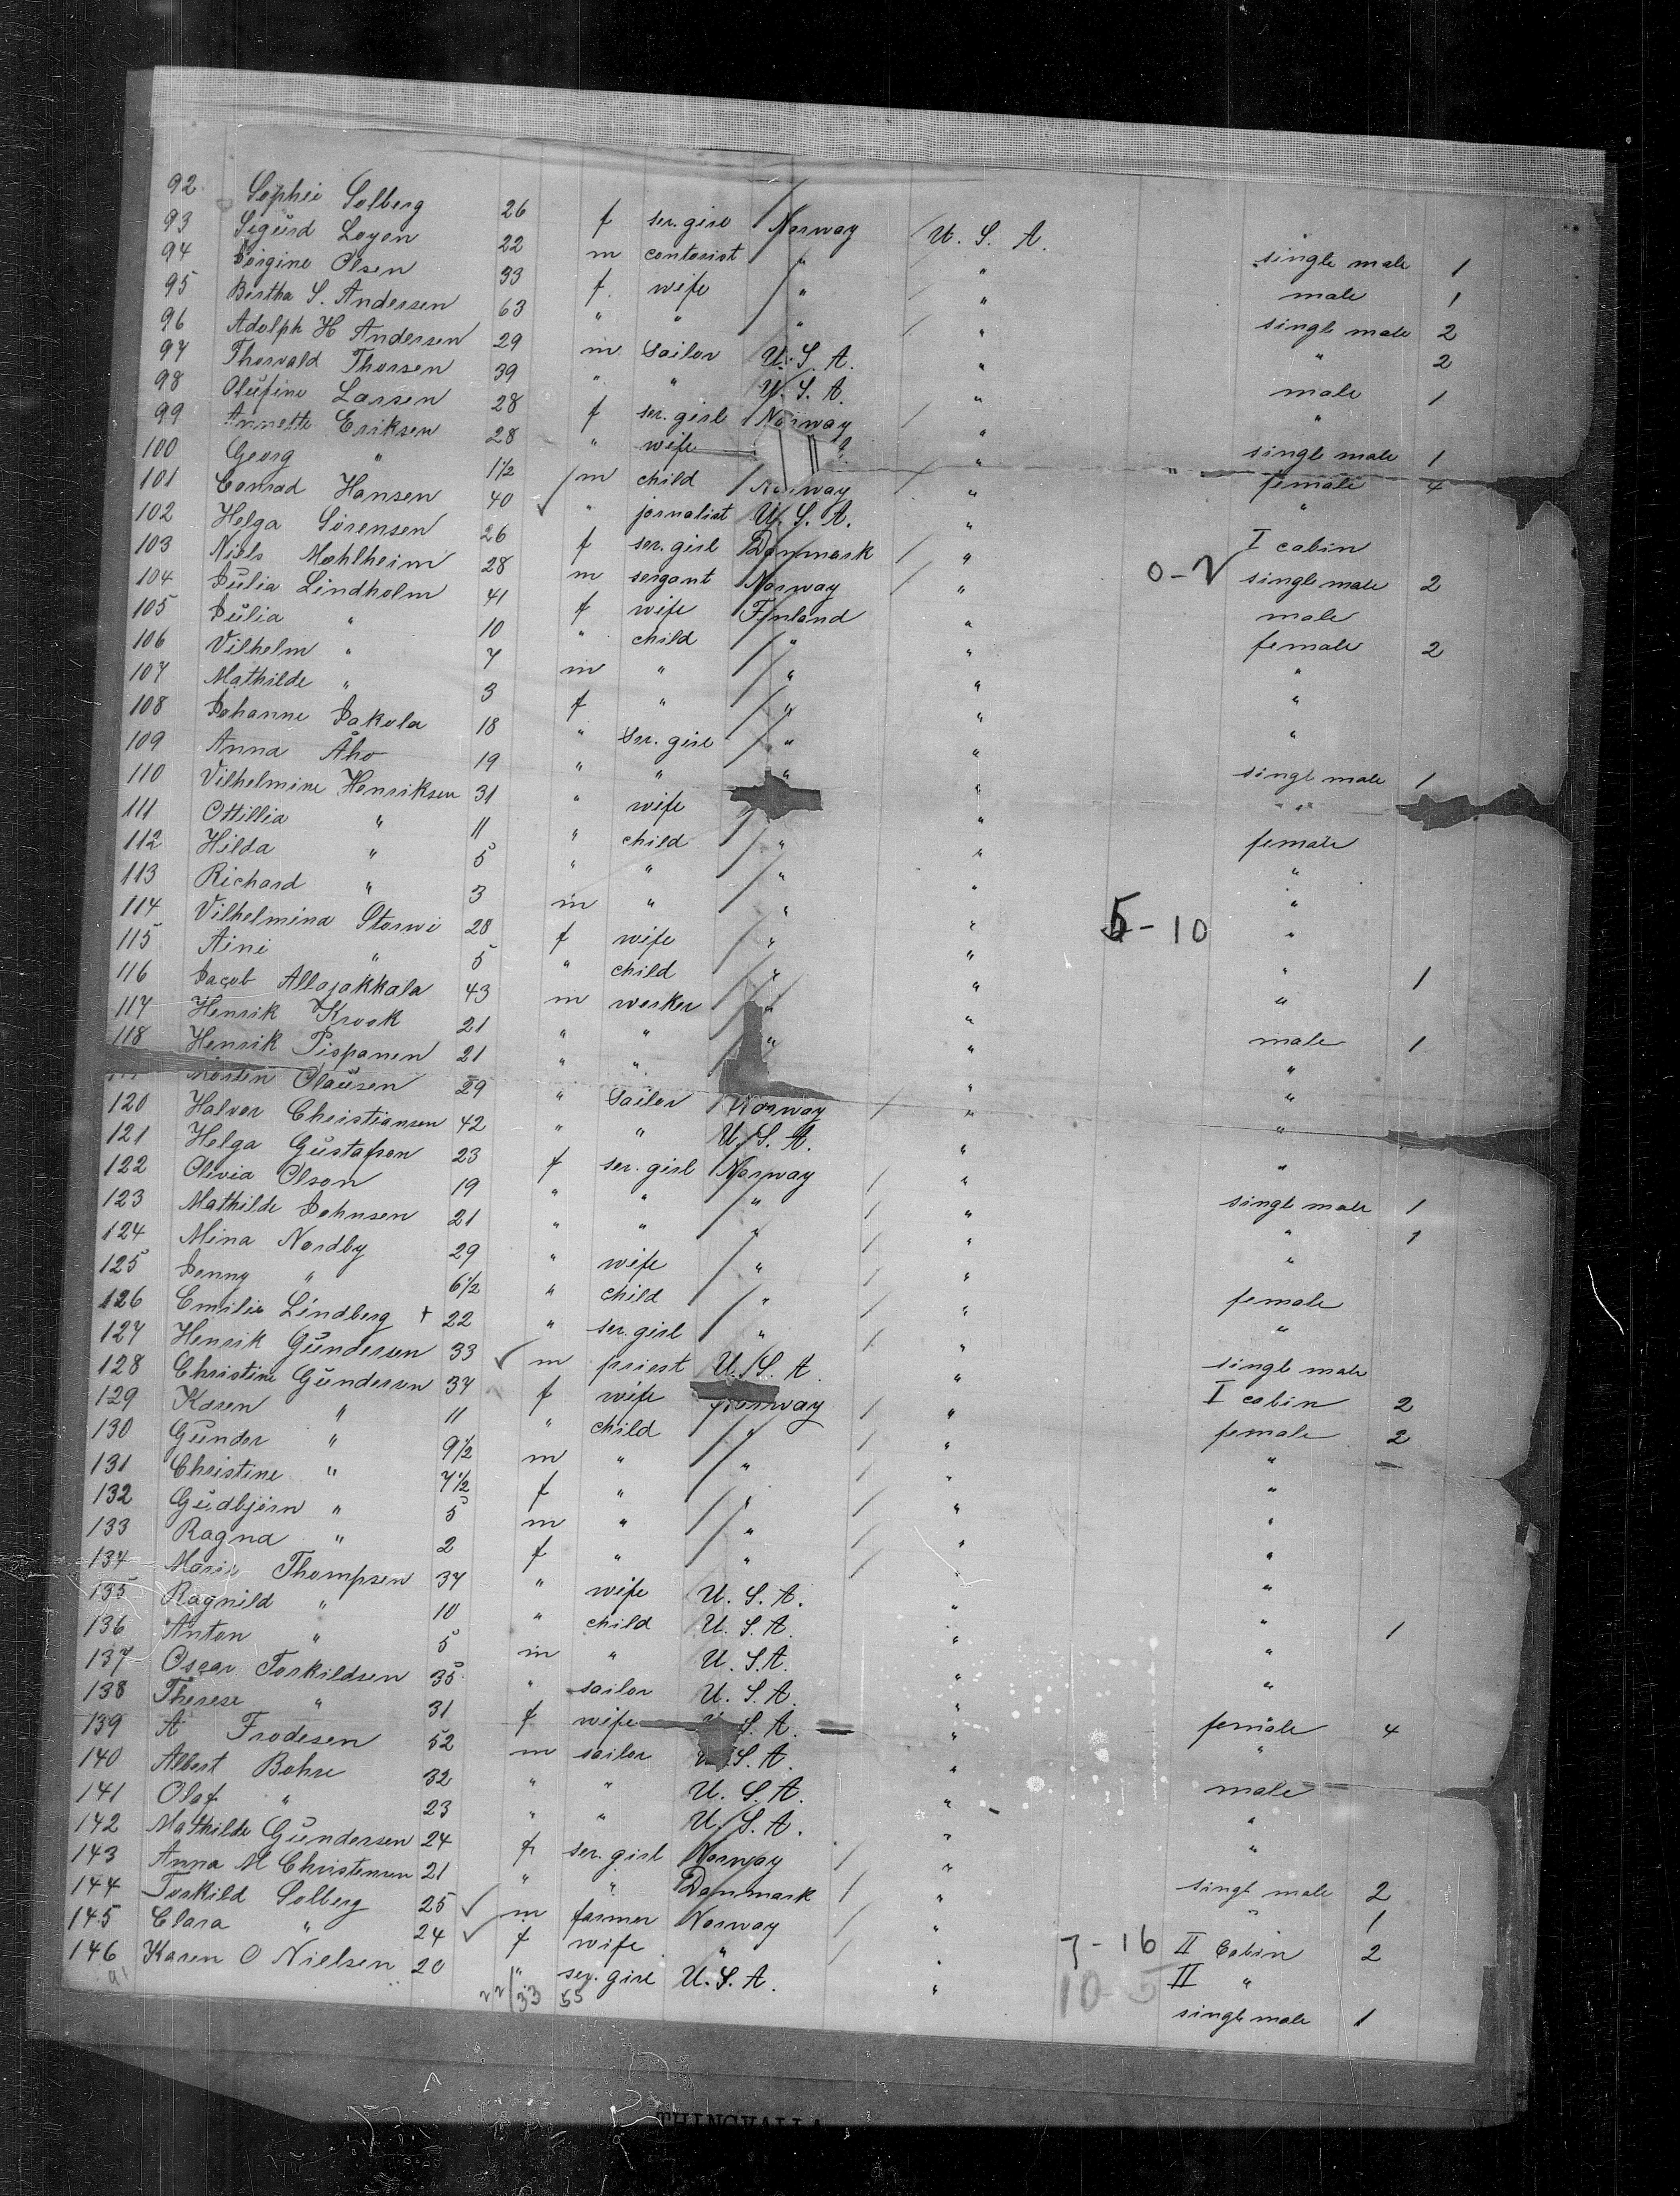 92 Sophie Solberg 26 f ser. girl Norway U. S. A. single male 1
93 Sigurd Loyen 22 m contorist " " male 1
94 Jorgine Olsen 33 f. wife " " single male 2
95 Bertha S. Andersen 63 " " " " " 2
96 Adolph H Andersen 29 m Sailor U. S. A. " male 1
97 Thorvald Thorsen 39 " " U. S. A. " "
98 Olufine Larsen 28 f ser. girl Norway " single male 1
99 Annette Eriksen 28 " wife " female 4
100 Georg " 1 1/2 m child Norway " "
101 Conrad Hansen 40 " jornalist U. S. A. " I cabin
102 Helga Sörensen 26 f ser. girl Danmark " 0-2 single male 2
103 Niels Mohlheim 28 m sergant Norway " male
104 Julia Lindholm 41 f wife Finland " female 2
105 Julia " 10 " child " " "
106 Vilhelm " 7 m " " " "
107 Mathilde " 3 f " " " "
108 Johanne Jakola 18 " Ser. girl " " single male 1
109 Anna Åho 19 " " " " " "
110 Vilhelmine Henriksen 31 " wife " female
111 Ottillia " 11 " child " " "
112 Hilda " 5 " " " " "
113 Richard " 3 m " " " "
114 Vilhelmina Storwi 28 f wife " " 5-10 " 1
115 Aini " 5 " child " " "
116 Jacob Allajakkala 43 m worker " " male 1
117 Henrik Krook 21 " " " " "
118 Henrik Pispanen 21 " " " "
Morten Olausen 29 " Sailor Norway " "
120 Halvor Christiansen 42 " " U. S. A. " "
121 Helga Gustafson 23 f ser. girl Norway " single male 1
122 Olivia Olson 19 " " " " " 1
123 Mathilde Johnsen 21 " " " " "
124 Mina Nordby 29 " wife " " female
125 Jenny " 6 1/2 " child " " "
126 Emilie Lindberg + 22 " ser. girl " " single male
127 Henrik Gundersen 33 m priest U. S. A. " I cabin 2
128 Christine Gundersen 37 f wife Norway " female 2
129 Karen " 11 " child " " "
130 Gunder " 9 1/2 m " " " "
131 Christine " 7 1/2 f " " " "
132 Gudbjörn " 5 m " " " "
133 Ragna " 2 f " " " "
134 Marie Thompsen 37 " wife U. S. A. " " 1
135 Ragnild " 10 " child U. S. A. " "
136 Anton " 5 m " U. S. A. " "
137 Oscar Torkildsen 35 " sailor U. S. A. " female 4
138 Therese " 31 f wife S. A. " "
139 A Frodesen 52 m sailor U. S. A. " male
140 Albert Bohre 32 " " U. S. A. " "
141 Olaf " 23 " " U. S. A. " "
142 Mathilde Gundersen 24 f ser. girl Norway " single male 2
143 Anna M Christensen 21 " " Danmark " " 1
144 Torkild Solberg 25 m farmer Norway " 7-16 II Cabin 2
145 Clara " 24 f wife " " II "
146 Karen O Nielsen 20 " ser. girl U. S. A. " single male 1
22/33 55
THINGVALLA